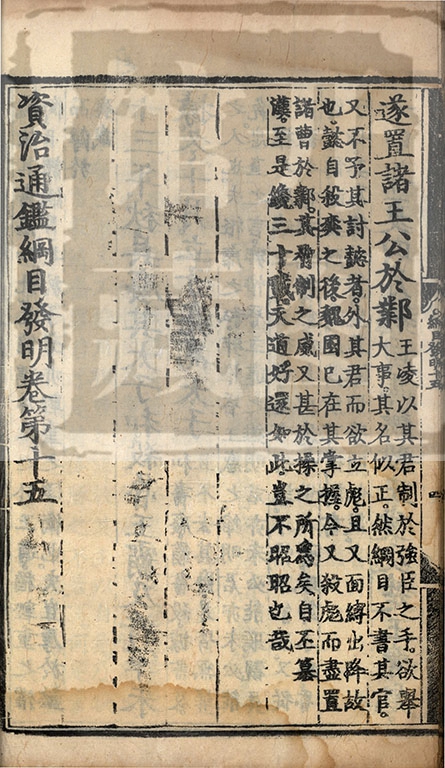 遂置諸王公於鄴
王凌以其君制於強臣之手。欲舉
大事。其名似正。然綱目不書其官。
又不予其討懿者。外其君而欲立彪。且又面縛出降故
也。懿自殺爽之後。魏國已在其掌握。今又殺彪而盡置
諸曹於鄴。其脅制之威又甚於操之所爲矣。自丕篡
漢。至是纔三十載。天道好還如此。豈不昭昭也哉
資治通鑑綱目發明卷第十五